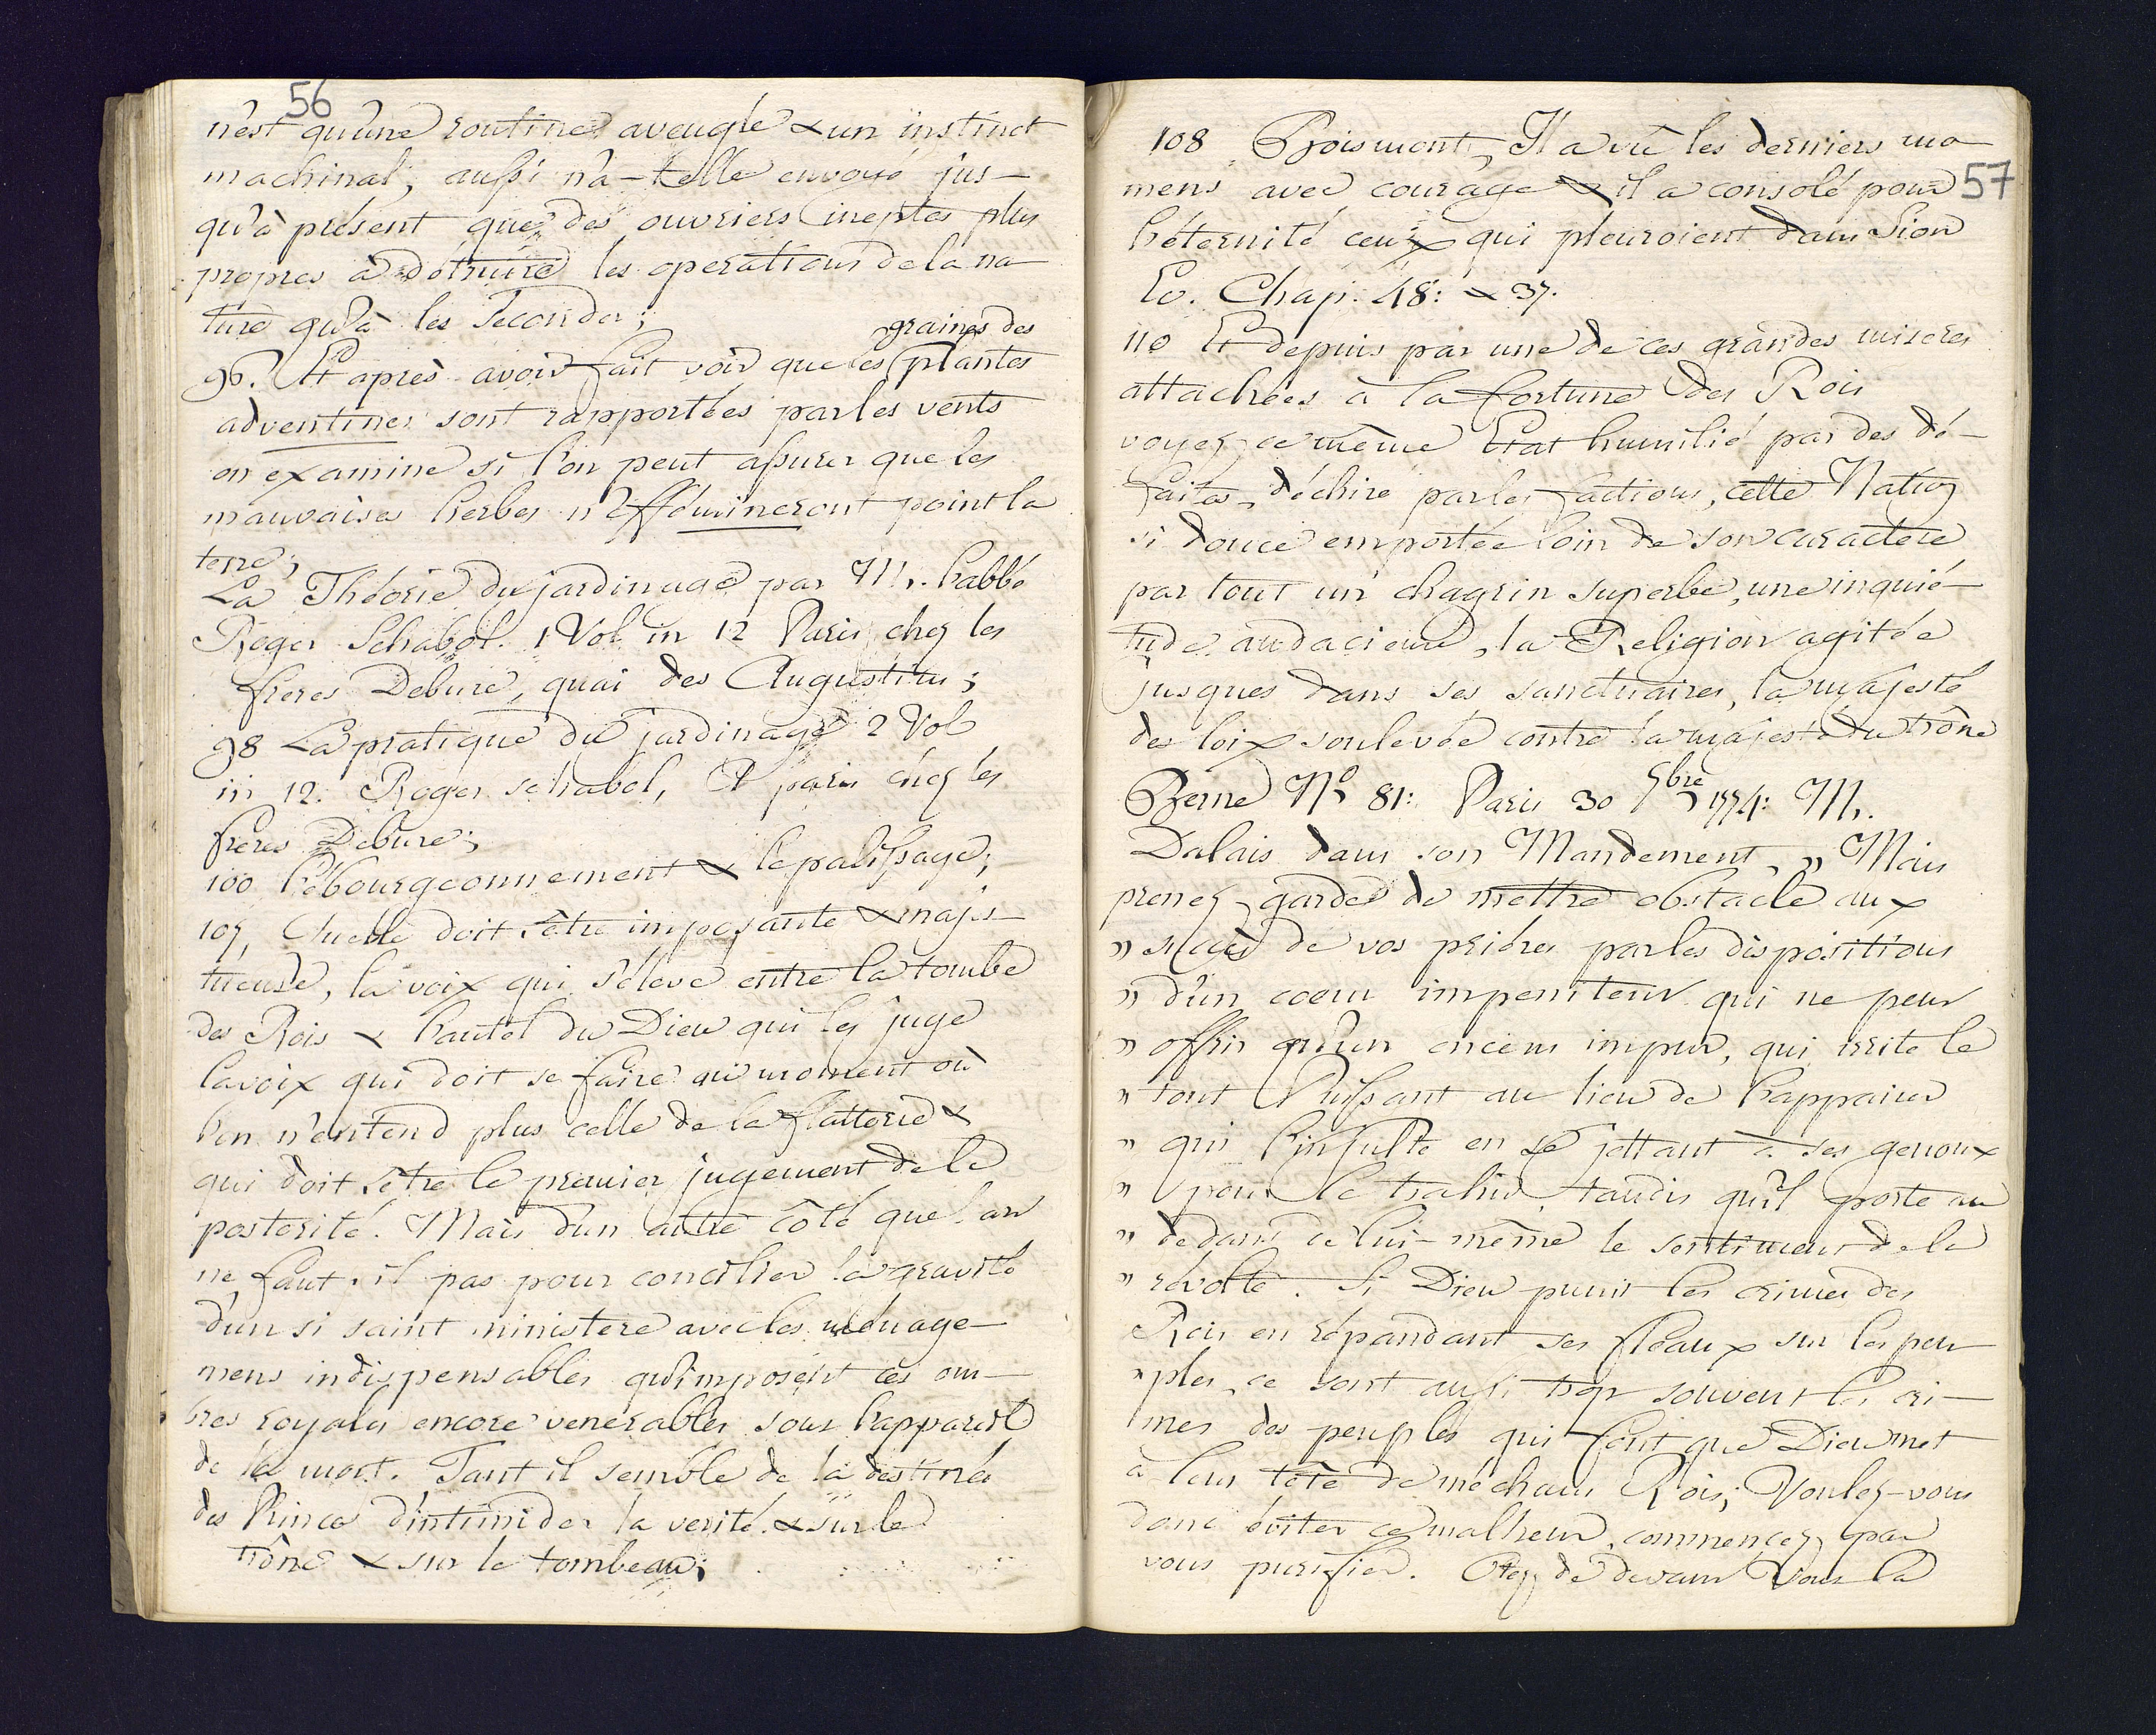 56
n'est qu'une routine aveugle & un instinct
machinal, aussi n'a-t-elle envoyé jus-
qu'à présent que des ouvriers ineptes plus
propres à détruire les operations de la na-
ture qu'à les seconder;
graines des
96. Et après avoir fait voir que les plantes
adventines sont rapportées par les vents
on examine si l'on peut assurer que les
mauvaises herbes n'efféminceront point la
terre;
La Théorie du jardinage par Mr. l'abbé
Roger Schabol. 1 Vol in 12 Paris chez les
freres Debure, quai des Augustins;
98 La pratique du jardinage 2 Vol
in 12. Roger schabol, A paris chez les
freres Debure;
100 l'ébourgeonnement & le palissage;
107, Quelle doit être imposante & majes-
tueuse, la voix qui s'éleve entre la tombe
des Rois & l'autel du Dieu qui les juge
la voix qui doit se faire au moment où
l'on n'entend plus celle de la flatterie &
qui doit être le premier jugement de la
posterité. Mais d'un autre côté quel art
ne faut-il pas pour concilier la gravité
d'un si saint ministere avec les ménage-
mens indispensables qu'imposent ces om-
bres royales encore venerables sous l'appareil
de la mort. Tant il semble de la destinée
des Princes d'intimider la verité & sur le
trône & sur le tombeau;
57
108 Boismont, Il a vû les derniers mo-
mens avec courage & il a consolé pour
l'éternité ceux qui pleuroient dans Sion
Ec. Chap. 48: & 37.
110 Et depuis par une de ces grandes miseres
attachées à la fortune des Rois
voyez ce même Etat humilié par des dé-
faites, déchiré par les factions, cette Nation
si douce emportée loin de son caractere
par tout un chagrin superbe, une inquié-
tude audacieuse, la Religion agitée
jusques dans ses sanctuaires, la majesté
des loix soulevée contre la majesté du trône
Berne No 81: Paris 30 7bre 1774: Mr.
Dalais dans son Mandement, „ Mais
prenez garde de mettre obstacle aux
„ succès de vos prières par les dispositions
„ d'un coeur impenitent qui ne peut
„ offrir qu'un encens impur, qui irrite le
„ tout Puissant au lieu de l'appaiser
„ qui l'insulte en se jettant à ses genoux
„ pour le trahir, tandis qu'il porte au
„ dedans de lui-même le sentiment de la
„ révolte. Si Dieu punit les crimes des
Rois en répandant ses fléaux sur les peu-
„ples, ce sont aussi trop souvent les cri-
mes des peuples qui font que Dieu met
à leur tête de méchans Rois; Voulez-vous
donc éviter ce malheur, commencez par
vous purifier. Otez de devant Vous la